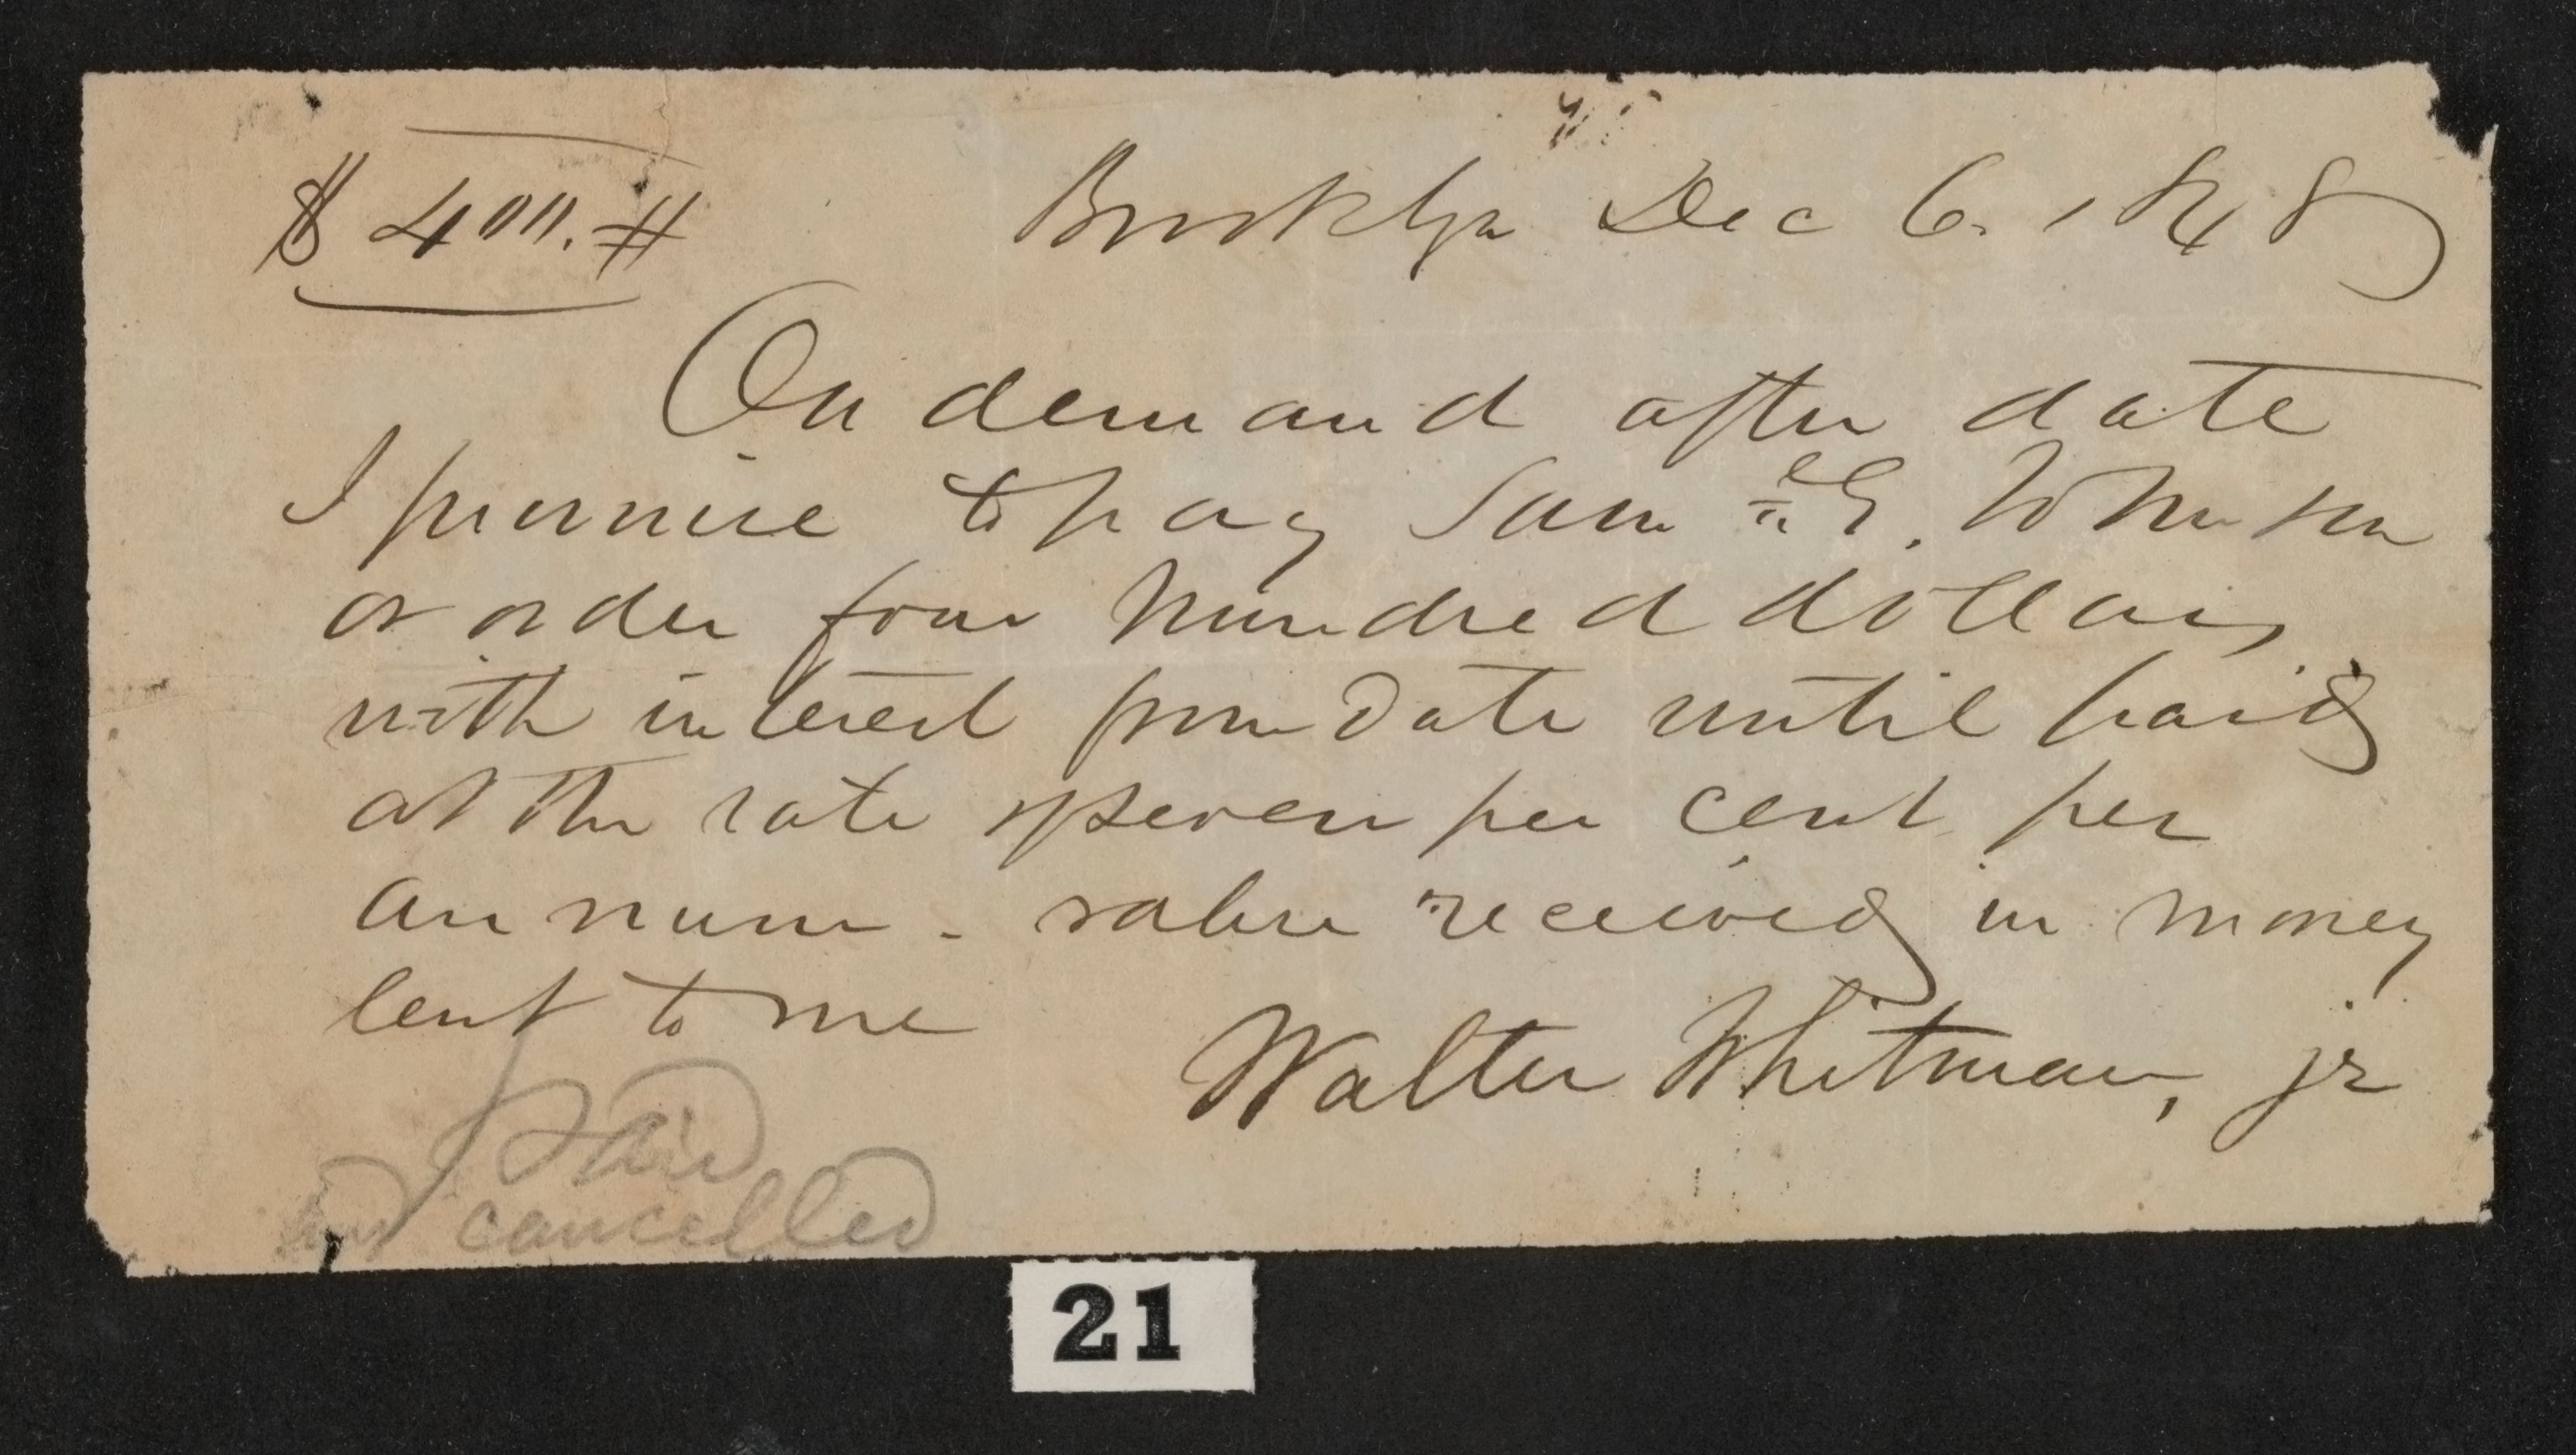 $ 400.#
Brooklyn Dec 6. 1848
On demand after date
I promise to pay Sam = E.
or order four hundred dollars,
with interest from date until paid
at the rate of seven per cent per
annum - value received in money
lent to me
Walter Whitman, jr
Paid
and cancelled
21